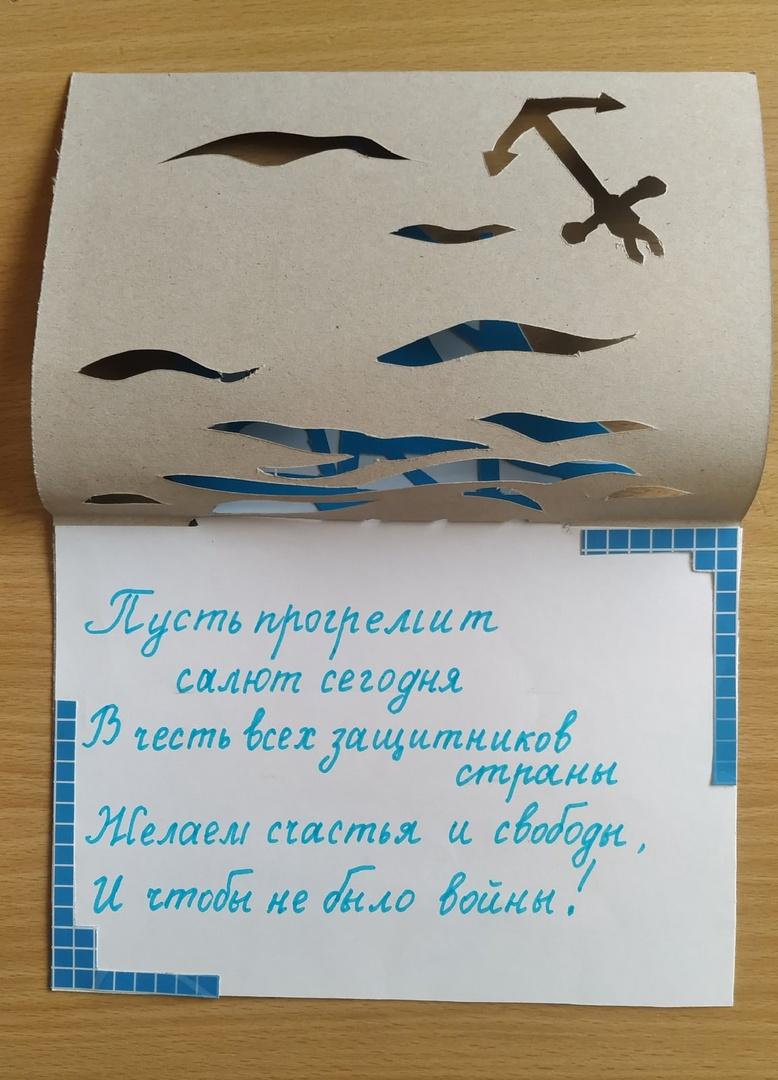 Пусть прогремит
салют сегодня
В честь всех защитников
страны
Желаем счастья и свободы,
И чтобы не было войны!